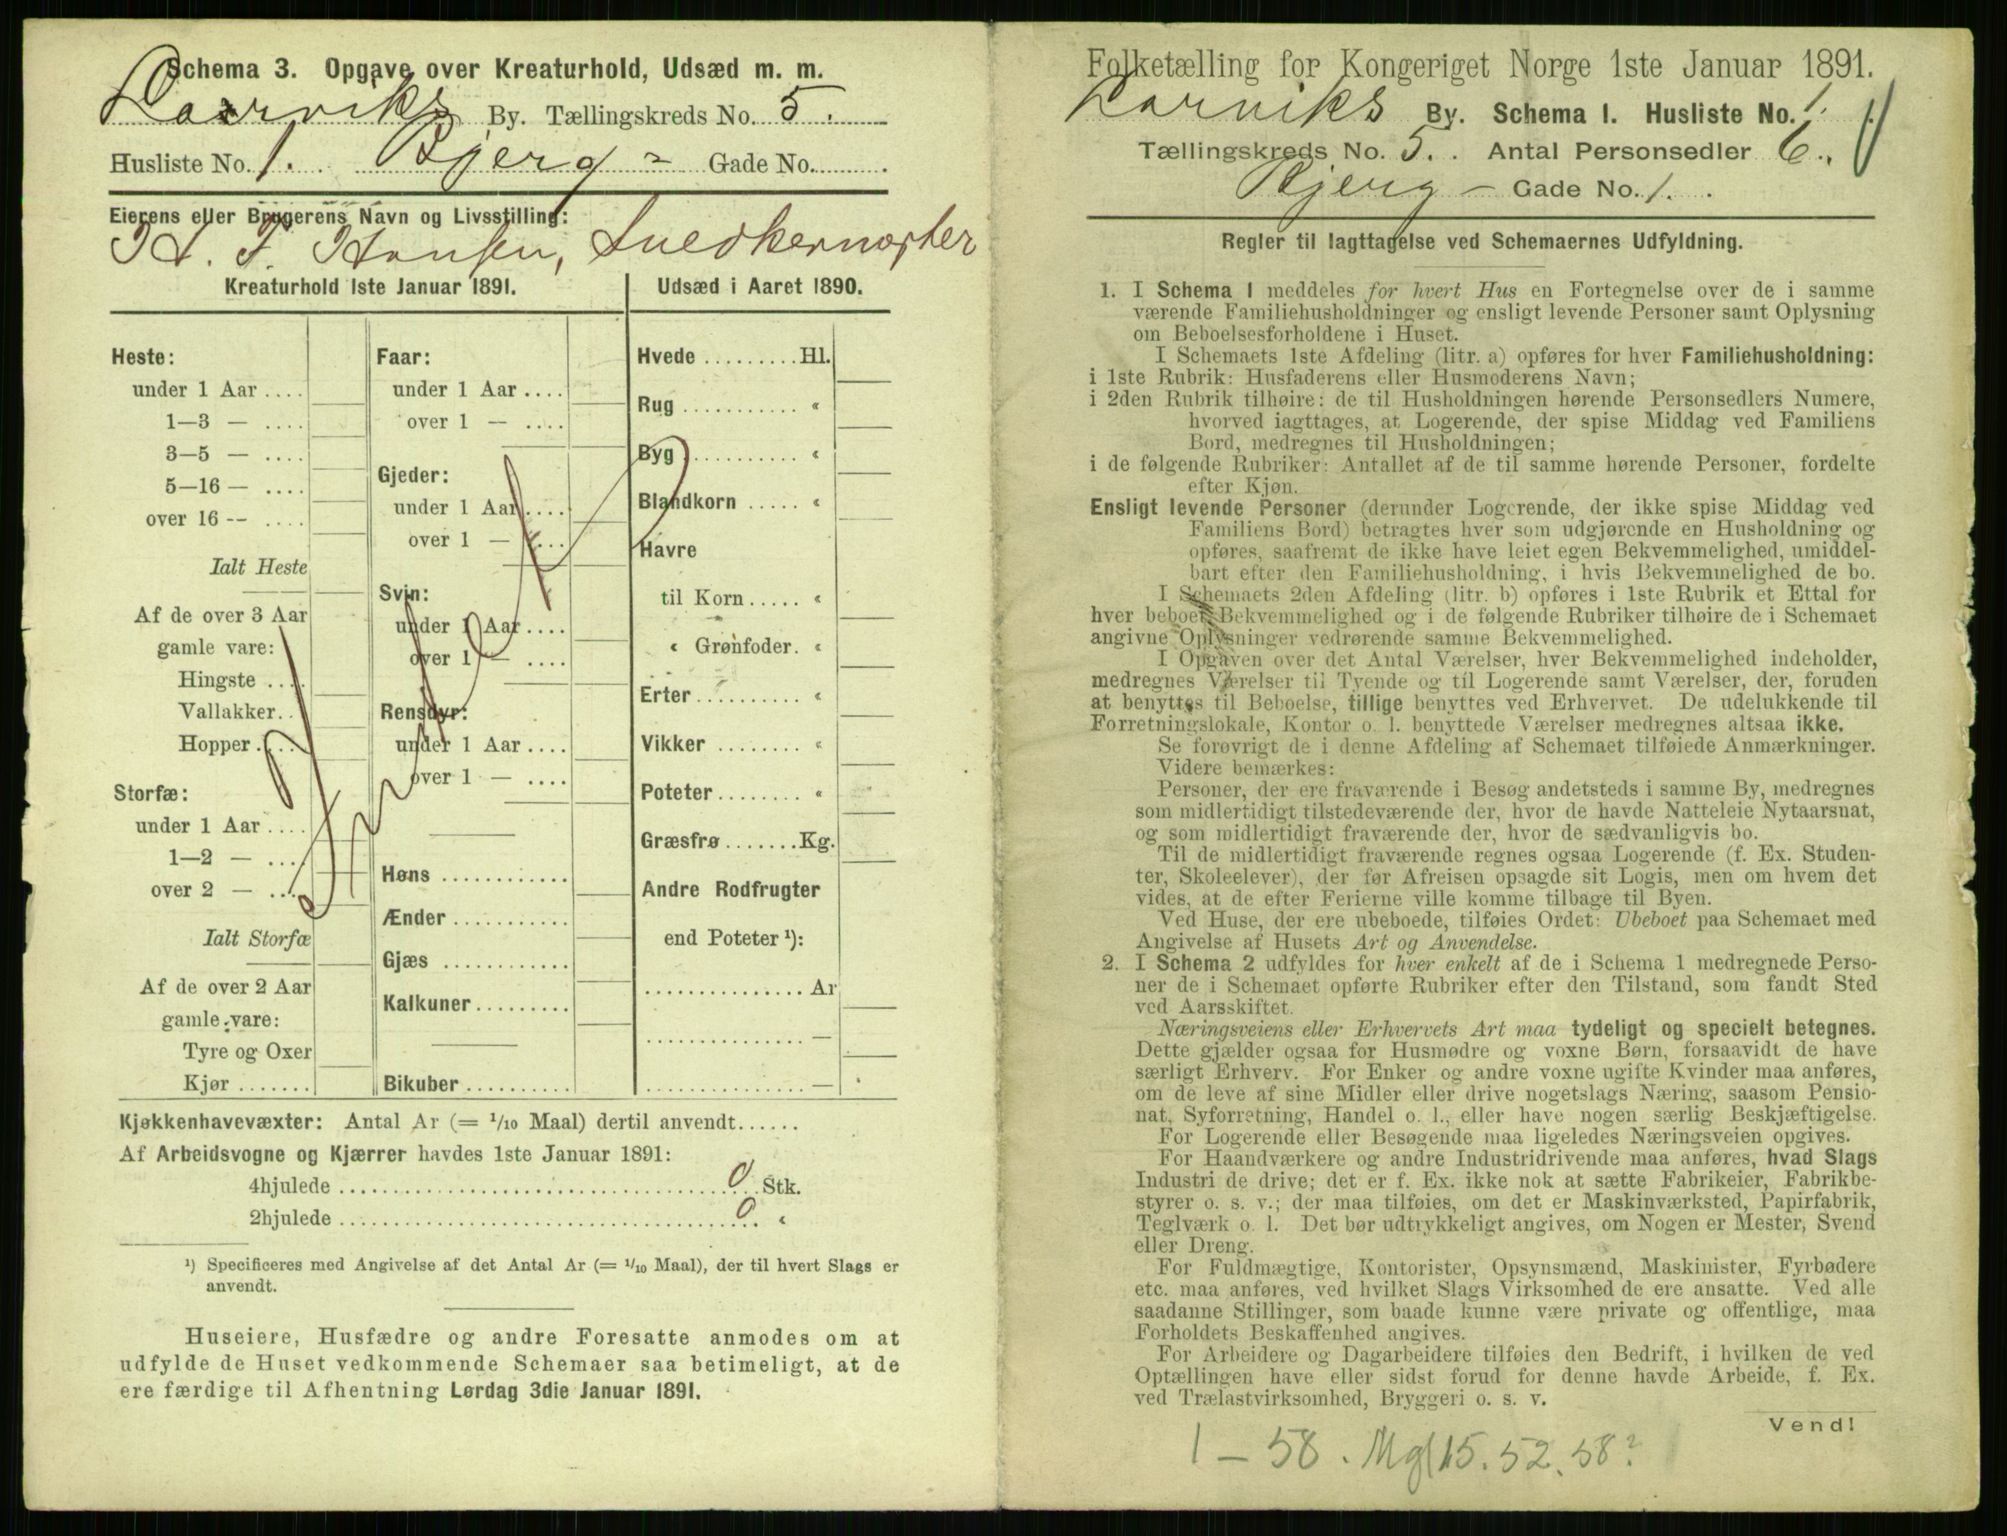 Schema 3. Opgave over Kreaturhold, Udsæd m. m.
Laurviks By. Tællingskreds No. 5.
Husliste No. 1. Bjerg- Gade No.
Eierens eller Brugerens Navn og Livsstilling:
H. F. Hansen, Snedkermester
Kreaturhold 1ste Januar 1891.
Heste:
under 1 Aar ....
1—3 — ....
3—5 — ....
5—16 — ....
over 16 -- ....
Ialt Heste
Af de over 3 Aar
gamle vare:
Hingste ....
Vallakker..
Hopper ....
Storfæ:
under 1 Aar ....
1—2 — ....
over 2 — ....
Ialt Storfæ
Af de over 2 Aar
gamle vare:
Tyre og Oxer
Kjør .......
Faar:
under 1 Aar ....
over 1 — ....
Gjeder:
under 1 Aar ....
over 1 — ....
Svin:
under 1 Aar ....
over 1 — ....
Rensdyr:
under 1 Aar ....
over 1 — ....
Høns ............
Ænder ...........
Gjæs ............
Kalkuner .........
Bikuber ..........
Udsæd i Aaret 1890.
Hvede ......... Hl.
Rug ........... «
Byg ........... «
Blandkorn ..... «
Havre
til Korn ..... «
« Grønfoder. «
Erter .......... «
Vikker ........ «
Poteter ........ «
Græsfrø ....... Kg.
Andre Rodfrugter
end Poteter ¹):
............... Ar
............... —
............... —
Kjøkkenhavevæxter: Antal Ar (= 1/10 Maal) dertil anvendt......
Af Arbeidsvogne og Kjærrer havdes 1ste Januar 1891:
4hjulede ........ 0 Stk.
2hjulede ........ 0 «
¹) Specificeres med Angivelse af det Antal Ar (= 1/10 Maal), der til hvert Slags er
anvendt.
Huseiere, Husfædre og andre Foresatte anmodes om at
udfylde de Huset vedkommende Schemaer saa betimeligt, at de
ere færdige til Afhentning Lørdag 3die Januar 1891.
Folketælling for Kongeriget Norge 1ste Januar 1891.
Larviks By. Schema 1. Husliste No. 1.
Tællingskreds No. 5. Antal Personsedler 6.
Bjerg- Gade No. 1.
Regler til Iagttagelse ved Schemaernes Udfyldning.
1. I Schema 1 meddeles for hvert Hus en Fortegnelse over de i samme
værende Familiehusholdninger og ensligt levende Personer samt Oplysning
om Beboelsesforholdene i Huset.
I Schemaets 1ste Afdeling (litr. a) opføres for hver Familiehusholdning:
i 1ste Rubrik: Husfaderens eller Husmoderens Navn;
i 2den Rubrik tilhøire: de til Husholdningen hørende Personsedlers Numere,
hvorved iagttages, at Logerende, der spise Middag ved Familiens
Bord, medregnes til Husholdningen;
i de følgende Rubriker: Antallet af de til samme hørende Personer, fordelte
efter Kjøn.
Ensligt levende Personer (derunder Logerende, der ikke spise Middag ved
Familiens Bord) betragtes hver som udgjørende en Husholdning og
opføres, saafremt de ikke have leiet egen Bekvemmelighed, umiddel-
bart efter den Familiehusholdning, i hvis Bekvemmelighed de bo.
I Schemaets 2den Afdeling (litr. b) opføres i 1ste Rubrik et Ettal for
hver beboet Bekvemmelighed og i de følgende Rubriker tilhøire de i Schemaet
angivne Oplysninger vedrørende samme Bekvemmelighed.
I Opgaven over det Antal Værelser, hver Bekvemmelighed indeholder,
medregnes Værelser til Tyende og til Logerende samt Værelser, der, foruden
at benyttes til Beboelse, tillige benyttes ved Erhvervet. De udelukkende til
Forretningslokale, Kontor o. l. benyttede Værelser medregnes altsaa ikke.
Se forøvrigt de i denne Afdeling af Schemaet tilføiede Anmærkninger.
Videre bemærkes:
Personer, der ere fraværende i Besøg andetsteds i samme By, medregnes
som midlertidigt tilstedeværende der, hvor de havde Natteleie Nytaarsnat,
og som midlertidigt fraværende der, hvor de sædvanligvis bo.
Til de midlertidigt fraværende regnes ogsaa Logerende (f. Ex. Studen-
ter, Skoleelever), der før Afreisen opsagde sit Logis, men om hvem det
vides, at de efter Ferierne ville komme tilbage til Byen.
Ved Huse, der ere ubeboede, tilføies Ordet: Ubeboet paa Schemaet med
Angivelse af Husets Art og Anvendelse.
2. I Schema 2 udfyldes for hver enkelt af de i Schema 1 medregnede Perso-
ner de i Schemaet opførte Rubriker efter den Tilstand, som fandt Sted
ved Aarsskiftet.
Næringsveiens eller Erhvervets Art maa tydeligt og specielt betegnes.
Dette gjælder ogsaa for Husmødre og voxne Børn, forsaavidt de have
særligt Erhverv. For Enker og andre voxne ugifte Kvinder maa anføres,
om de leve af sine Midler eller drive nogetslags Næring, saasom Pensio-
nat, Syforretning, Handel o. l., eller have nogen særlig Beskjæftigelse.
For Logerende eller Besøgende maa ligeledes Næringsveien opgives.
For Haandværkere og andre Industridrivende maa anføres, hvad Slags
Industri de drive; det er f. Ex. ikke nok at sætte Fabrikeier, Fabrikbe-
styrer o. s. v.; der maa tilføies, om det er Maskinværksted, Papirfabrik,
Teglværk o. l. Det bør udtrykkeligt angives, om Nogen er Mester, Svend
eller Dreng.
For Fuldmægtige, Kontorister, Opsynsmænd, Maskinister, Fyrbødere
etc. maa anføres, ved hvilket Slags Virksomhed de ere ansatte. Ved alle
saadanne Stillinger, som baade kunne være private og offentlige, maa
Forholdets Beskaffenhed angives.
For Arbeidere og Dagarbeidere tilføies den Bedrift, i hvilken de ved
Optællingen have eller sidst forud for denne havde Arbeide, f. Ex.
ved Trælastvirksomhed, Bryggeri o. s. v.
Vend!
1 – 58. Mgl 15. 52. 58?